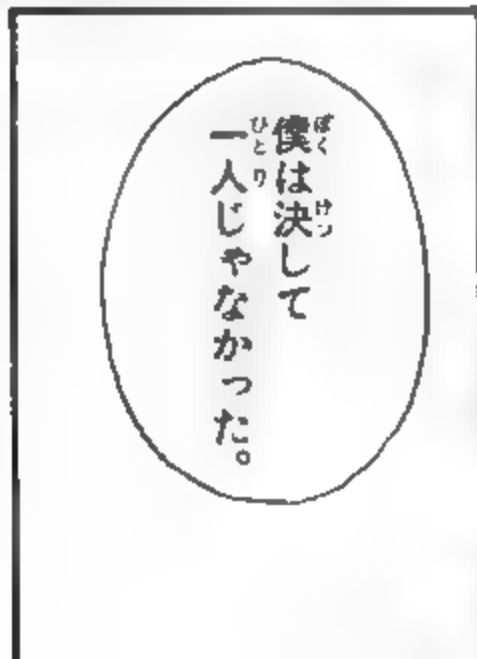 僕は決して
一人じゃなかった。